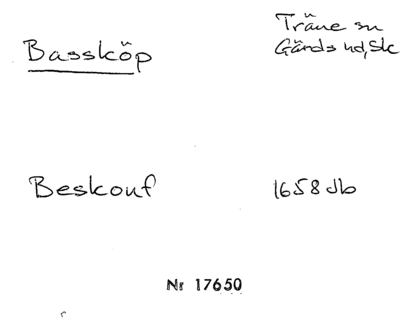 Basskö̈p
Träne sn
Gärds hd, Sk
Beskouf
1658 Jb
Nr 17650